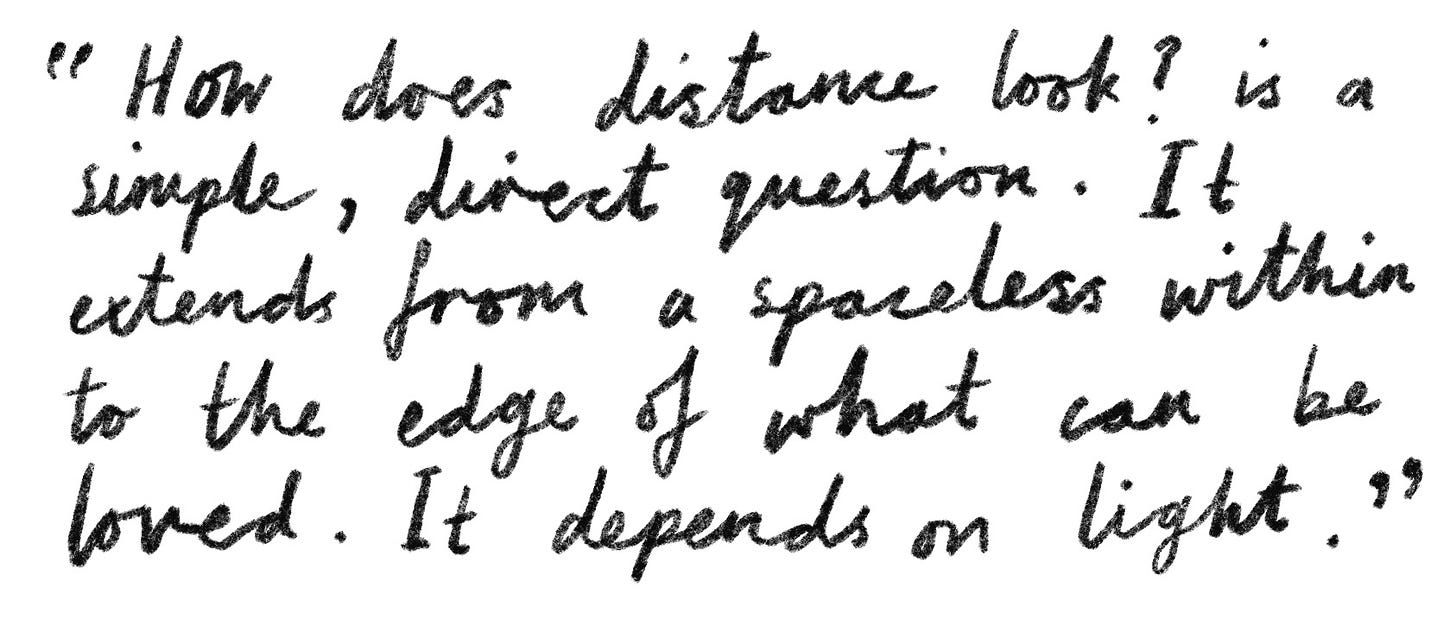 “How does distance look? is a
simple, direct question. It
extends from a spaceless within
to the edge of what can be
loved. It depends on light.”